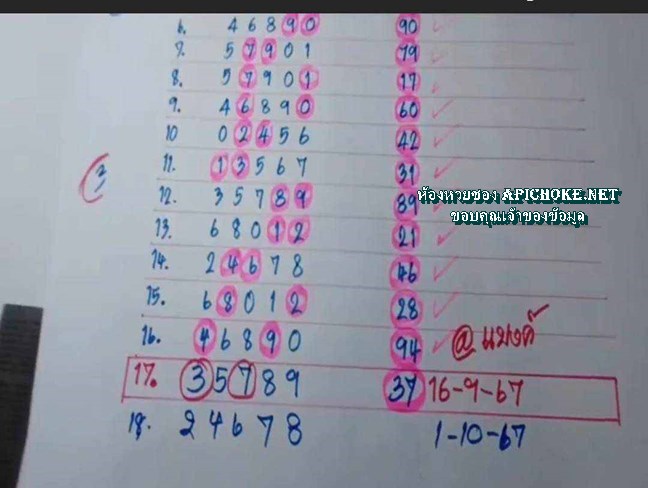 6. 4 6 8 9 0 90
7. 5 7 9 0 1 79
8. 5 7 9 0 1 17
9. 4 6 8 9 0 60
10 0 2 4 5 6 42
11. 1 3 5 6 7 31
3
12. 3 5 7 8 9 89
ห้องหวยซอง APICHOKE.NET
ขอบคุณเจ้าของข้อมูล
13. 6 8 0 1 2 21
14. 2 4 6 7 8 46
15. 6 8 0 1 2 28
16. 4 6 8 9 0 94 @ แบงค์
17. 3 5 7 8 9 37 16-9-67
18. 2 4 6 7 8 1-10-67